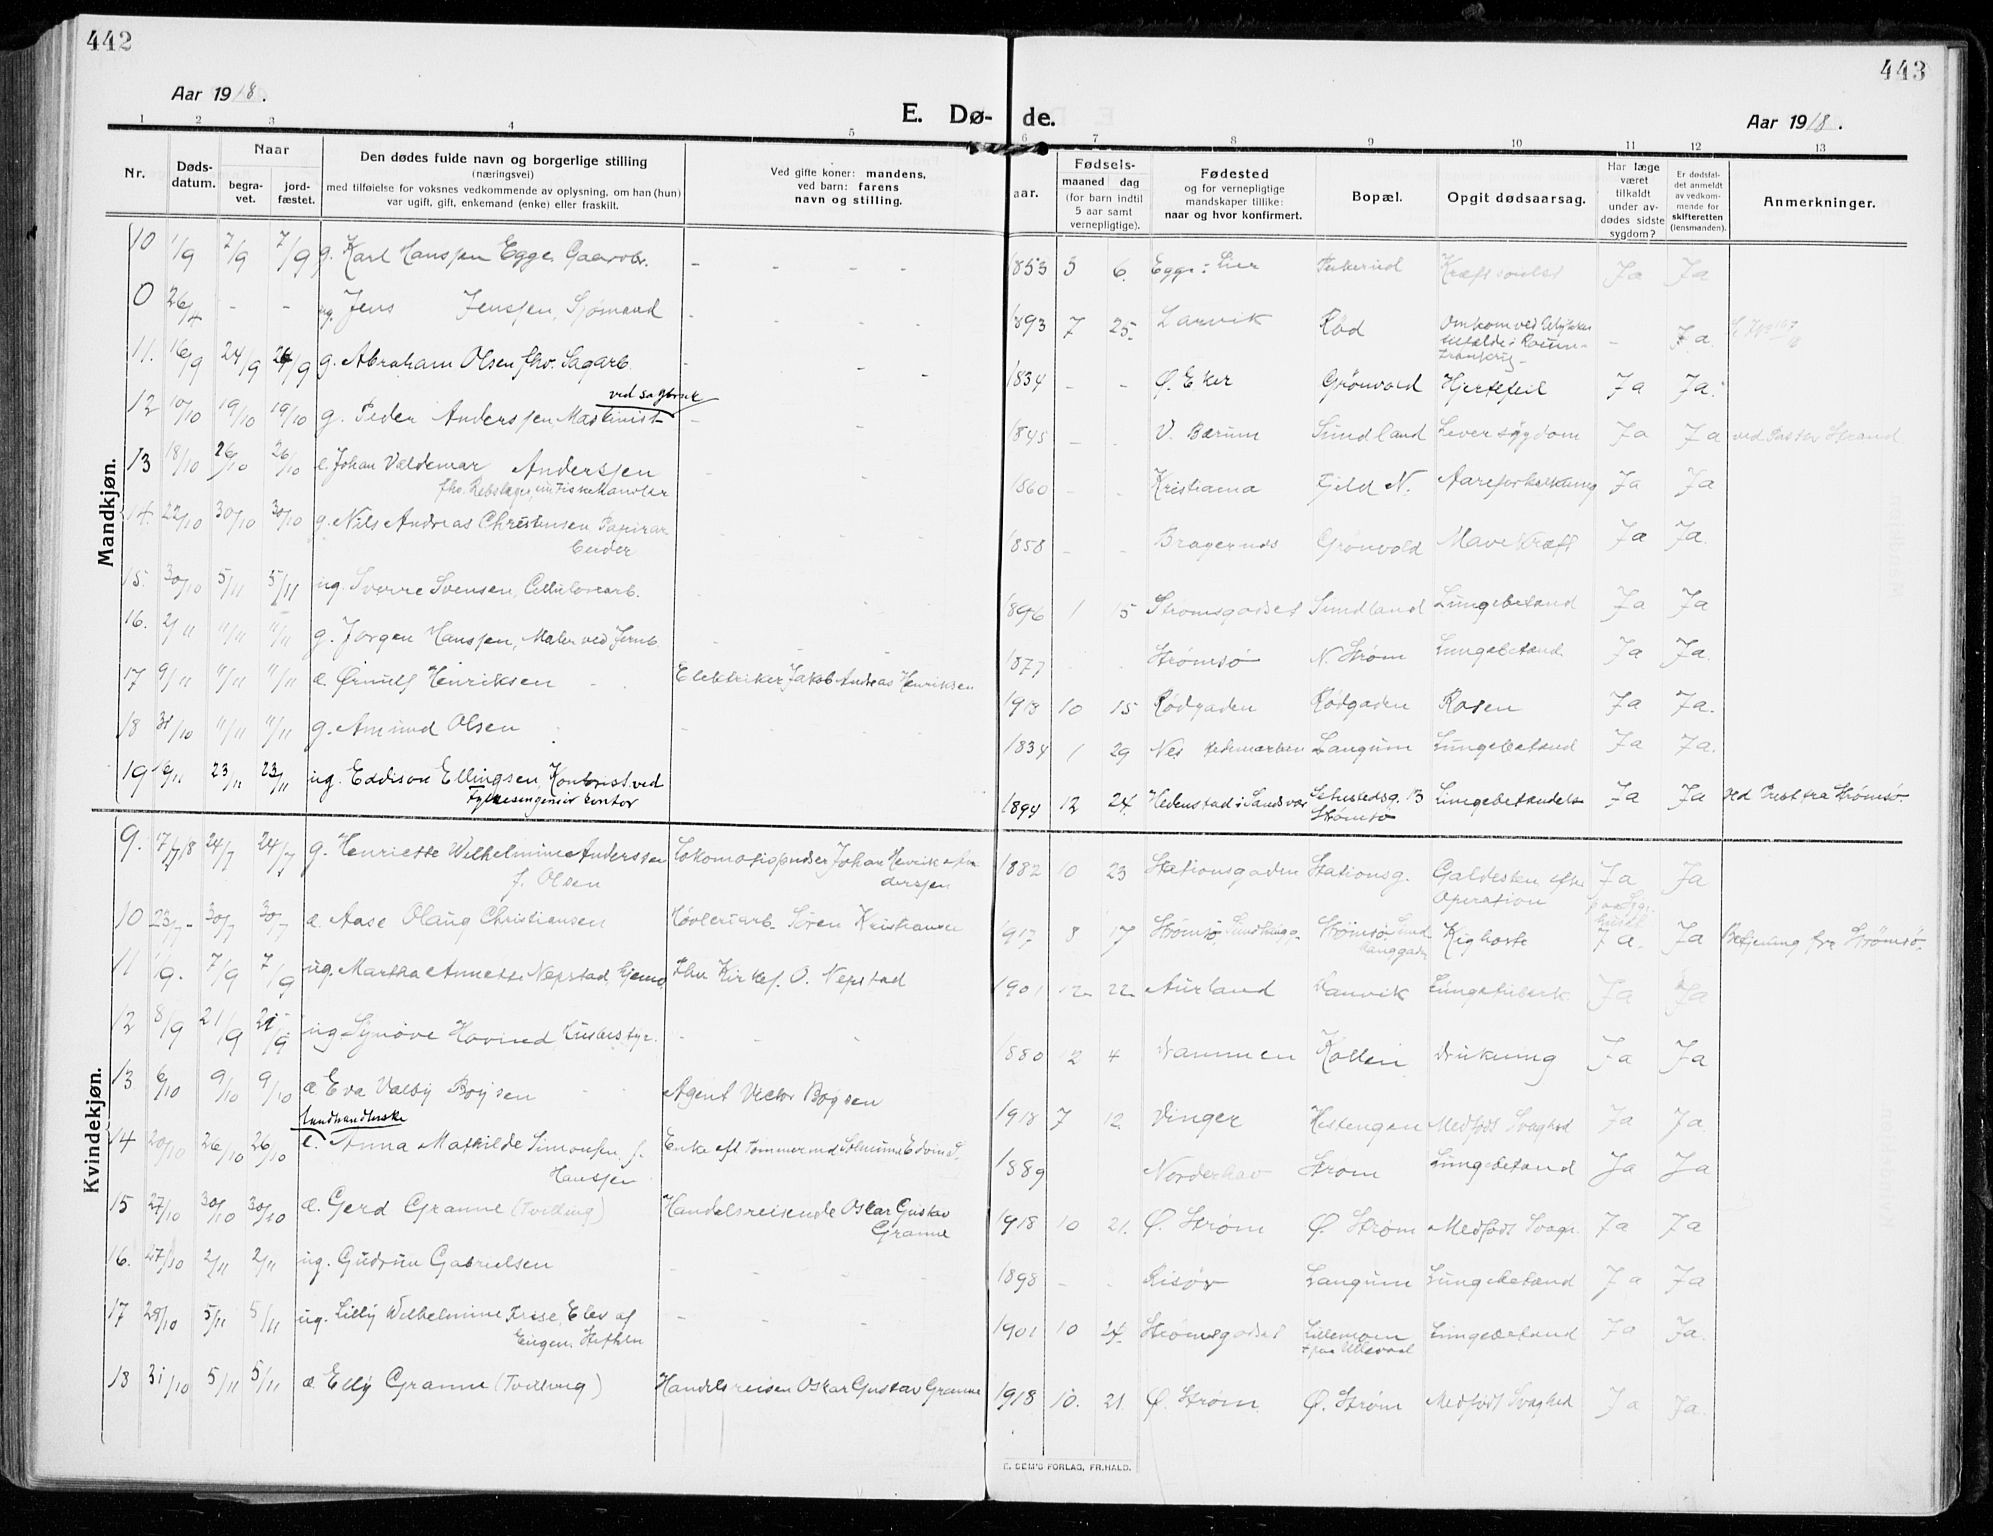 442
443
Aar 1918.
E. Dø-
de.
Aar 1918.
1 2 3 4 5 6 7 8 9 10 11 12 13
Nr.
Døds-
datum.
Naar
begra-
vet.
jord-
fæstet.
Den dødes fulde navn og borgerlige stilling
(næringsvei)
med tilføielse for voksnes vedkommende av oplysning, om han (hun)
var ugift, gift, enkemand (enke) eller fraskilt.
Ved gifte koner: mandens,
ved barn: farens
navn og stilling.
aar.
Fødsels-
maaned dag
(for barn indtil
5 aar samt
vernepligtige).
Fødested
og for vernepligtige
mandskaper tillike:
naar og hvor konfirmert.
Bopæl.
Opgit dødsaarsag.
Har læge
været
tilkaldt
under av-
dødes sidste
sygdom?
Er dødsfal-
det anmeldt
av vedkom-
mende for
skifteretten
(lensmanden).
Anmerkninger.
Mandkjøn.
10 1/9 7/9 7/9 g. Karl Hanssen Egge, Gaardbr. - - - 1853 5 6. Egge i Lier Kræftsvulst Ja Ja
0 26/4 - - ug. Jens Jenssen, Sjømand - - - 1893 7 25 Larvik Rød Omkom ved Ulykkes
tilfælde i - Ja.
11. 16/9 24/9 24/9 g. Abraham Olsen fhv. Sagarb. - - - 1834 - - Ø. Eker Grønvold Hjertefeil Ja Ja.
ved sagbruk
12 10/10 19/10 19/10 g. Peder Anderssen, Maskinist - - 1845 - - V. Bærum Sundland Leversygdom Ja Ja ved Pastor Strand
13 18/10 26/10 26/10 e. Johan Valdemar Anderssen
fhv. Rebslager, nu Fiskehandler 1860 - - Kristiania Fjeld N. Aareforkalkning Ja Ja
14. 22/10 30/10 30/10 g. Nils Andreas Christensen, Papirar
beider - - - 1858 - - Bragernes Grønvold Mavekræft Ja Ja.
15. 30/10 5/11 5/11 ug. Sverre Svensen, Cellulosearb. 1896 1 15 Strømsgodset Sundland Lungebetænd Ja Ja
16. 2/11 11/11 11/11 g. Jørgen Hanssen, Maler ved Jernb. - - 1877 - - Strømsø N. Strøm Lungebetænd. Ja Ja.
17 9/11 11/11 11/11 æ. Ørnulf Henriksen - Elektriker Jakob Andreas Henriksen 1918 10 15 Rødgaden Rødgaden Rosen Ja Ja.
18 31/10 11/11 11/11 g. Amund Olsen - - - 1834 1 29 Nes Hedemarken Langum Lungebetænd Ja Ja.
19 16/11 23/11 23/11 ug. Eddison Ellingsen, Kontorist ved
Fylkesingeniør kontor 1894 12 24. Hedenstad i Sandsvær Sehestedsg. 13
Strømsø Lungebetændelse Ja Ja ved Prest fra Strømsø.
Kvindekjøn.
9. 17/7 18 24/7 24/7 g. Henriette Wilhelmine Anderssen
f. Olsen Lokomotivpudser Johan Henrik An
derssen 1882 10 23 Stationsgaden Stationsg. Galdesten efter
Operation Ja Ja
10 23/7 30/7 30/7 æ. Aase Olaug Christiansen Høvleriarb. Søren Kristiansen 1917 8 17 Strømsø Strømsø Kighoste Ja. Ja fra Strømsø.
11 1/9. 7/9 7/9 ug. Martha Annette Nepstad, hjemv. Fhv Kirkes. O. Nepstad 1901 12 22 Aurland Danvik Lungetuberk. Ja Ja
12 8/9 21/9 21/9 ug Synøve Hovind, Husbestyr. - - - 1880 12 4 Drammen Kollen Drukning Ja Ja
13 6/10 9/10 9/10 æ Eva Valby Boysen - - Agent Victor Boysen 1918 7 12. Vinger Hestengen Medfødt Svaghed Ja Ja.
14 20/10 26/10 26/10 e. Anna Mathilde Simonsen, f.
Hanssen Enke eft Tømmermd Edvin S. 1889 Norderhov Strøm Lungebetænd Ja Ja
15 27/10 30/10 30/10 æ. Gerd Granne (Tvilling) Handelsreisende Oskar Gustav
Granne 1918 10 21. Ø. Strøm Ø. Strøm Medfødt Svagh. Ja Ja
16. 27/10 2/11 2/11 ug. Gudrun Gabrielsen - - - 1898 - - Risør Langum Lungebetænd Ja Ja
17 29/10 5/11 5/11 ug. Lilly Wilhelmine Friese, Elev af
Eugen. Stiftelse - - - 1901 10 24. Strømsgodset Lillemoen
+ paa Ullevaal Lungebetænd Ja Ja.
18 31/10 5/11 5/11 æ. Elly Granne (Tvilling) Handelsreisen Oskar Gustav Granne 1918 10. 21. Ø. Strøm Ø. Strøm Medfødt Svaghed Ja Ja.
E. SEM'S FORLAG, FR.HALD.